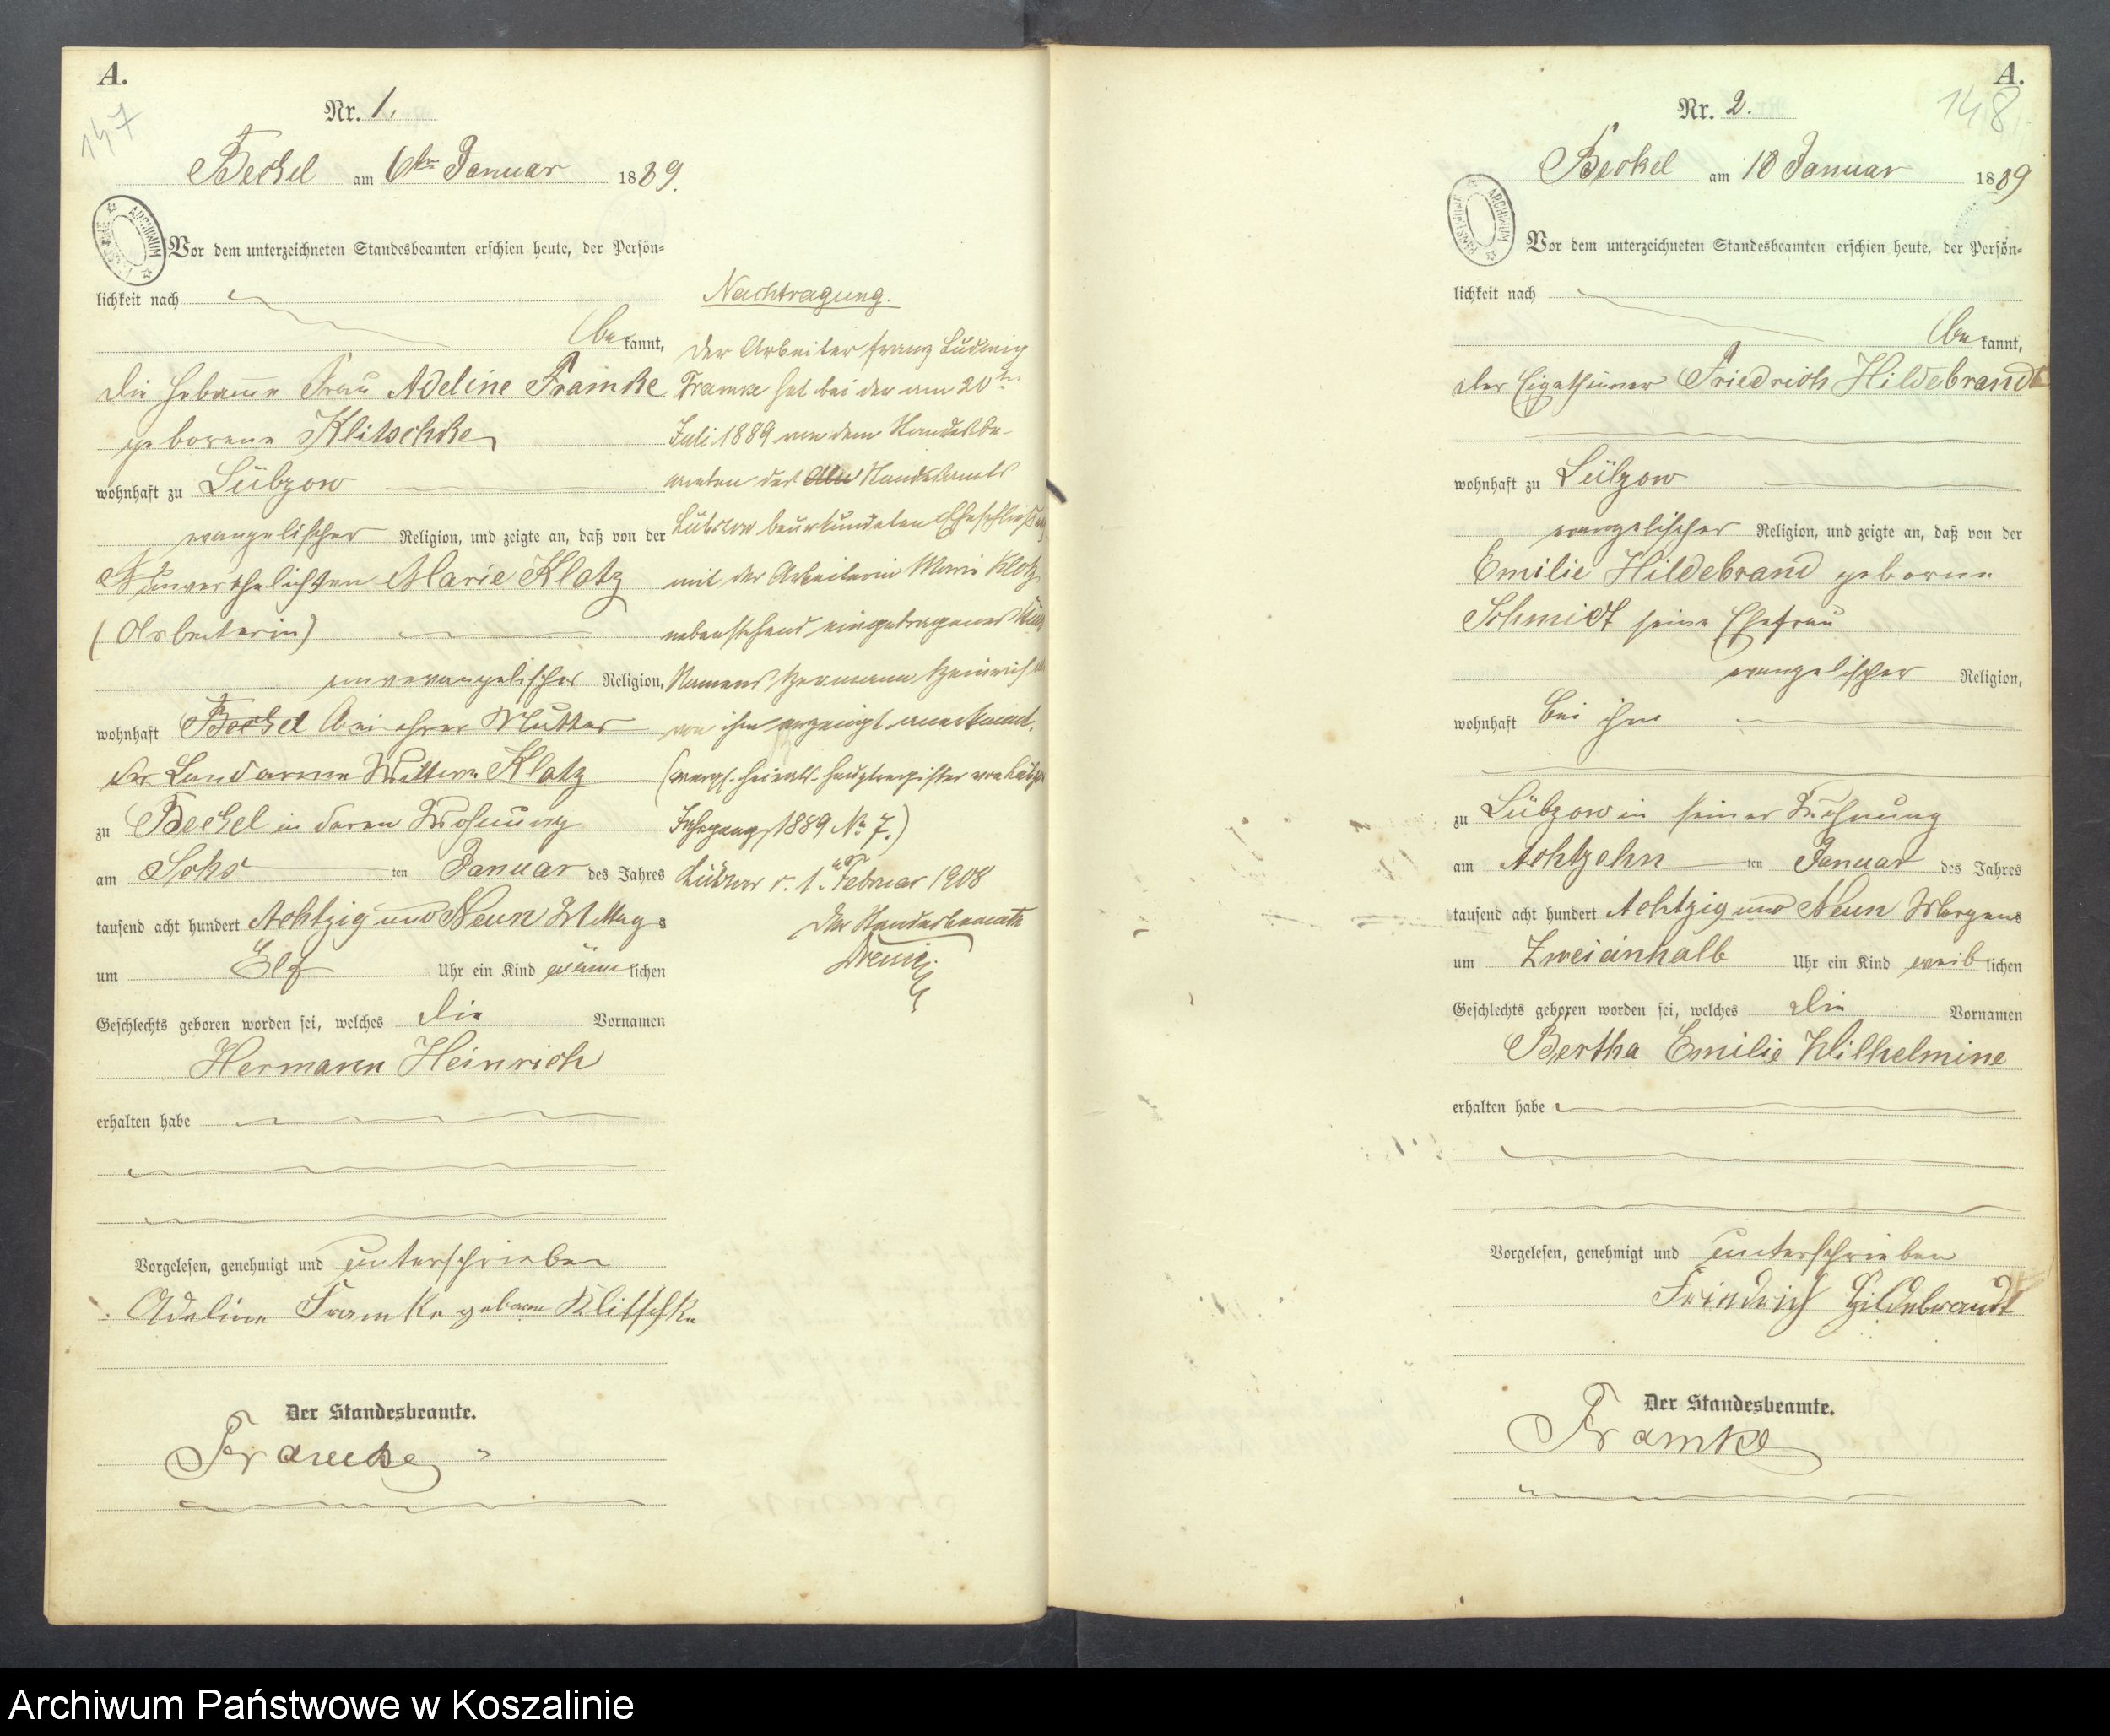 A.
147
Nr. 1.
Beckel am 6ten Januar 1889.
ARCHIWUM PAŃSTWOWE
Vor dem unterzeichneten Standesbeamten erschien heute, der Persön-
lichkeit nach
bekannt,
die Hebamme Frau Adeline Framke
geborene Klitschke
wohnhaft zu Lübzow
evangelischer Religion, und zeigte an, daß von der
unverehelichten Marie Klotz
(Arbeiterin)
evangelischer Religion,
wohnhaft Beckel bei ihrer Mutter
der Landarme Wittwe Klotz
zu Beckel in deren Wohnung
am Sechs ten Januar des Jahres
tausend acht hundert Achtzig und Neun Mittags
um Elf Uhr ein Kind männlichen
Geschlechts geboren worden sei, welches die Vornamen
Hermann Heinrich
erhalten habe
Vorgelesen, genehmigt und unterschrieben
Adeline Framke geborne Klitschke
Der Standesbeamte.
Framke
Nachtragung.
Der Arbeiter Franz Ludwig
Framke hat bei der am 20ten
Juli 1889 von dem Standesbe-
amten des Standesamts
Lübzow beurkundeten Eheschließung
mit der Arbeiterin Marie Klotz
nebenstehend eingetragenes Kind
Namens Hermann Heinrich als
von ihm erzeugt anerkannt.
(vergl. Heirats-Hauptregister von Lübzow
Jahrgang 1889 No 7.)
Lübzow d. 1. Februar 1908
Der Standesbeamte
A.
148
Nr. 2.
Beckel am 18 Januar 1889
ARCHIWUM PAŃSTWOWE
Vor dem unterzeichneten Standesbeamten erschien heute, der Persön-
lichkeit nach
bekannt,
der Eigenthümer Friedrich Hildebrandt
wohnhaft zu Lübzow
evangelischer Religion, und zeigte an, daß von der
Emilie Hildebrand geborne
Schmidt seine Ehefrau
evangelischer Religion,
wohnhaft bei ihm
zu Lübzow in seiner Wohnung
am Achtzehn ten Januar des Jahres
tausend acht hundert Achtzig und Neun Morgens
um Zweieinhalb Uhr ein Kind weiblichen
Geschlechts geboren worden sei, welches die Vornamen
Bertha Emilie Wilhelmine
erhalten habe
Vorgelesen, genehmigt und unterschrieben
Friedrich Hildebrandt
Der Standesbeamte.
Framke
Archiwum Państwowe w Koszalinie